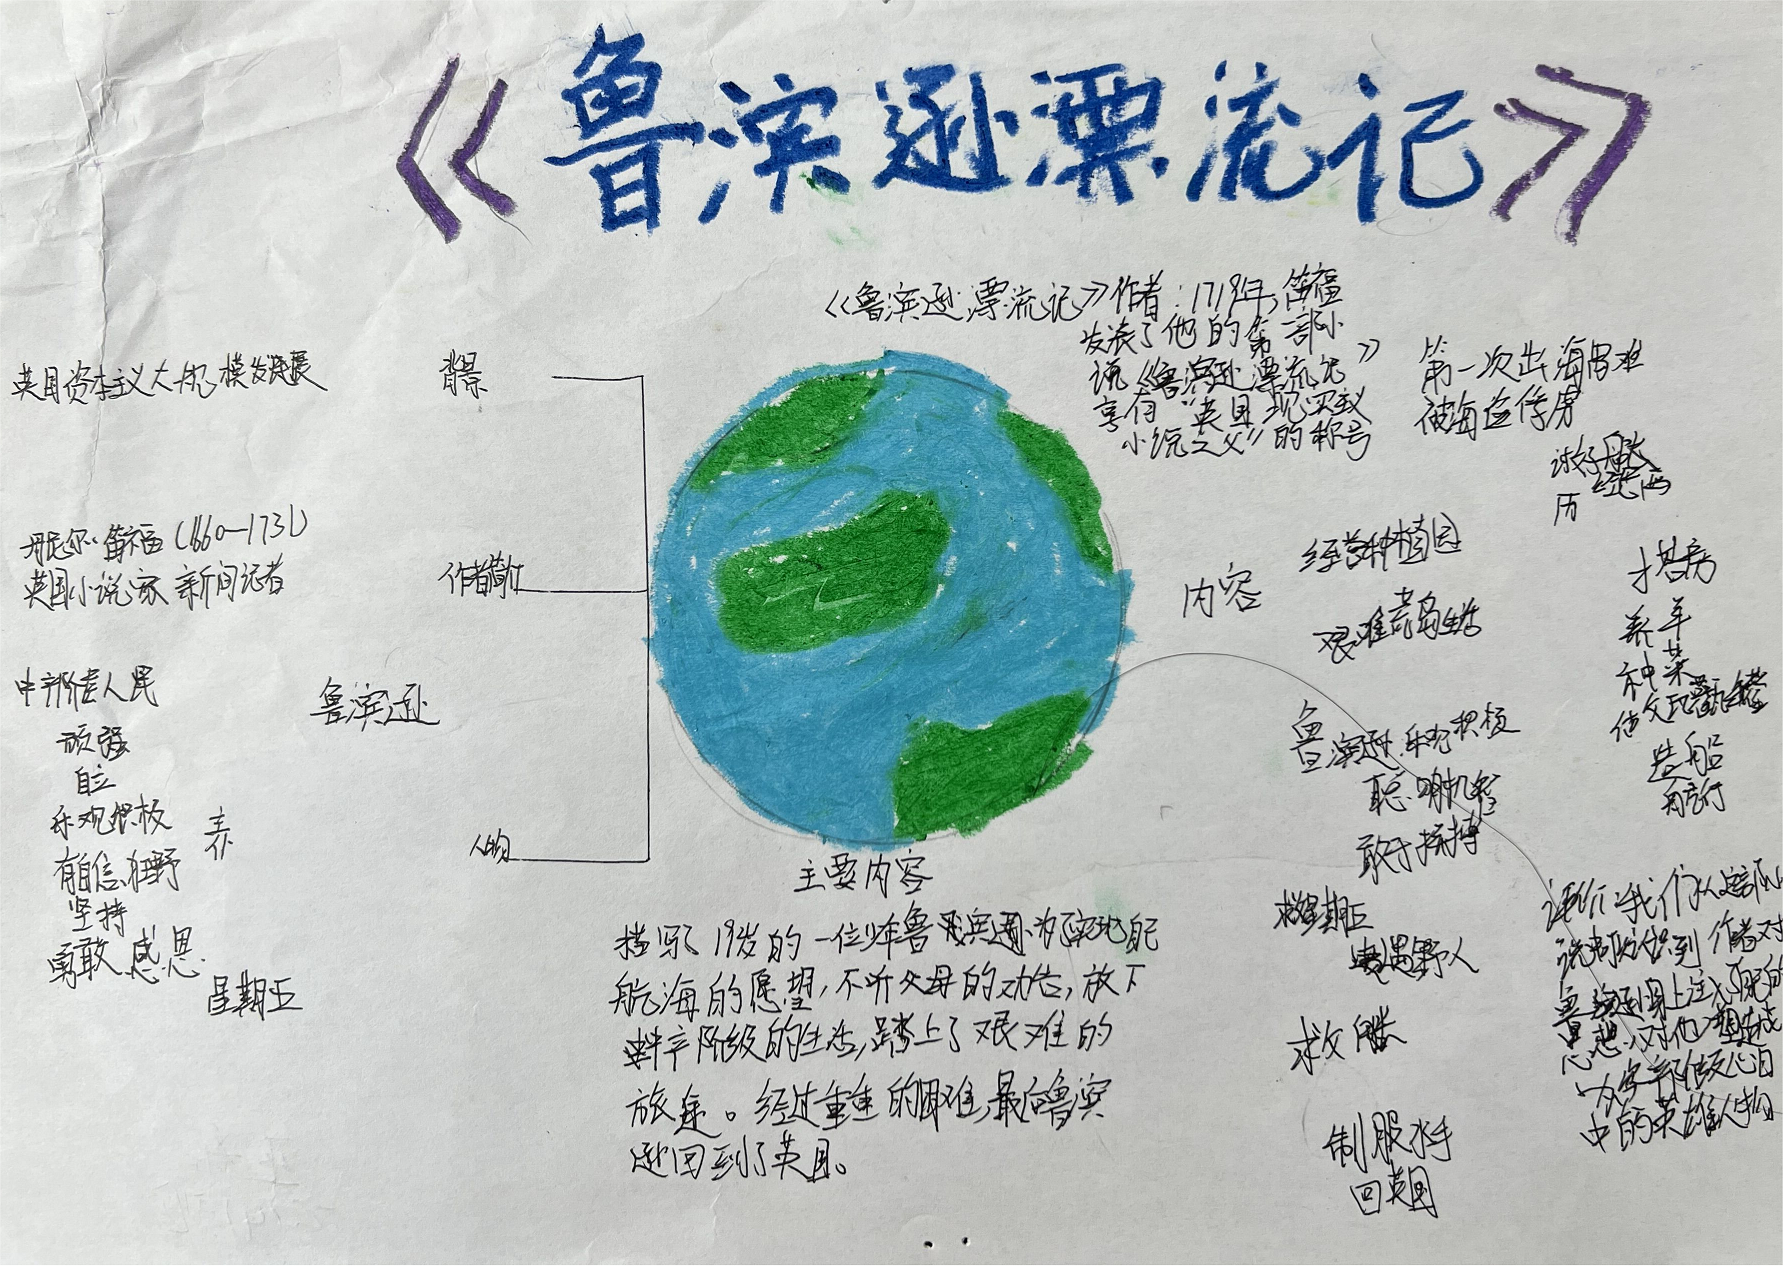 《鲁滨逊漂流记》
《鲁滨逊漂流记》作者：1719年，笛福
发表了他的第一部小
说《鲁滨逊漂流记》
享有“英国现实主义
小说之父”的称号
英国资本主义大规模发展
背景
丹尼尔·笛福（1660—1731）
英国小说家 新闻记者
作者简介
中产阶层人民
顽强
自立
乐观积极
有自信 狂野
坚持
勇敢 感恩
鲁滨逊
主
仆
星期五
人物
主要内容
描写了19岁的一位少年鲁滨逊为了实现自己
航海的愿望，不听父母的劝告，放下
中产阶级的生活，踏上了艰难的
旅途。经过重重的困难，最后鲁滨
逊回到了英国。
内容
第一次出海遇难
被海盗俘虏
历
经营种植园
艰难荒岛生活
搭房
养羊
种菜
造船
航行
鲁滨逊：乐观积极
聪明机智
敢于拼搏
救星期五
遇野人
救船长
制服水手
回英国
中的英雄人物